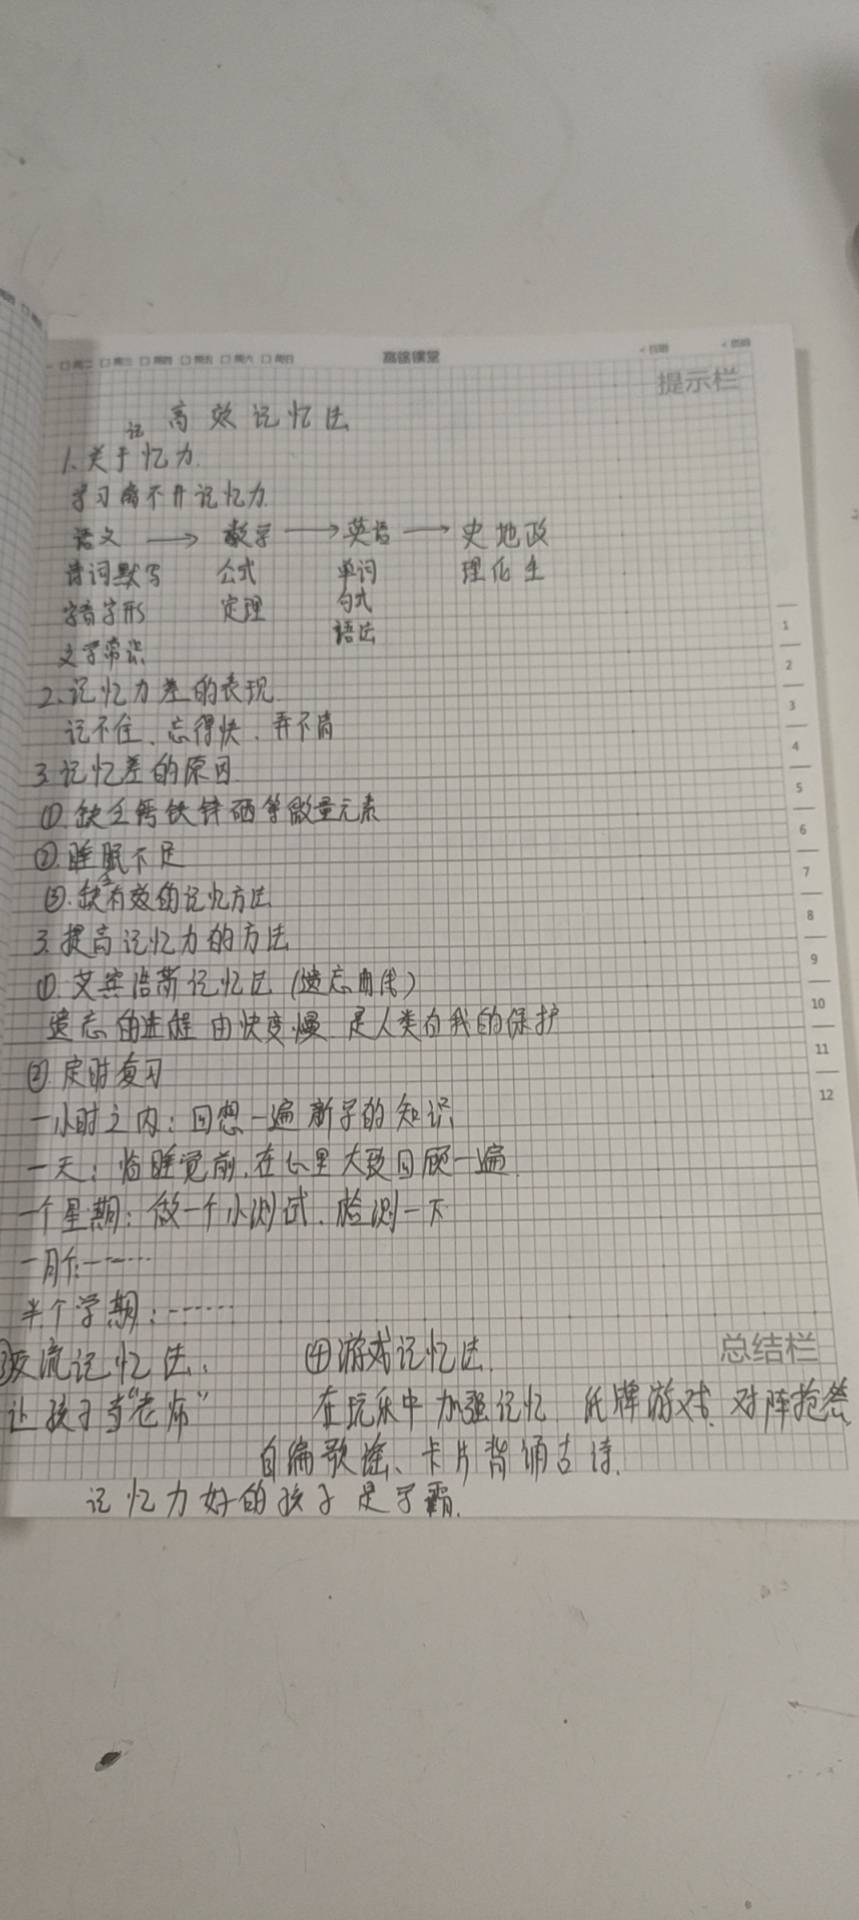 □周二 □周三 □周四 □周五 □周六 □周日
高途课堂
提示栏
高效记忆法
1.关于记忆力.
学习离不开记忆力
语文 → 数学 → 英语 → 史地政
诗词默写 公式 单词 理化生
字音字形 定理 句式
文学常识 语法
2.记忆力差的表现
记不住、忘得快、弄不清
3.记忆差的原因
①.缺乏钙铁锌硒等微量元素
②.睡眠不足
③.缺乏有效的记忆方法
3.提高记忆力的方法
①.艾宾浩斯记忆法(遗忘曲线)
遗忘的进程 由快变慢 是人类自我的保护
②定时复习
一小时之内:回想一遍新学的知识
一天:临睡觉前,在心里大致回顾一遍.
一个星期:做一个小测试.检测一下
一月个:……
半个学期:……
③交流记忆法. ④游戏记忆法.
让孩子当"老师" 在玩乐中加强记忆 纸牌游戏、对阵抢答
自编歌谣、卡片背诵古诗.
记忆力好的孩子是学霸.
1
2
3
4
5
6
7
8
9
10
11
12
总结栏